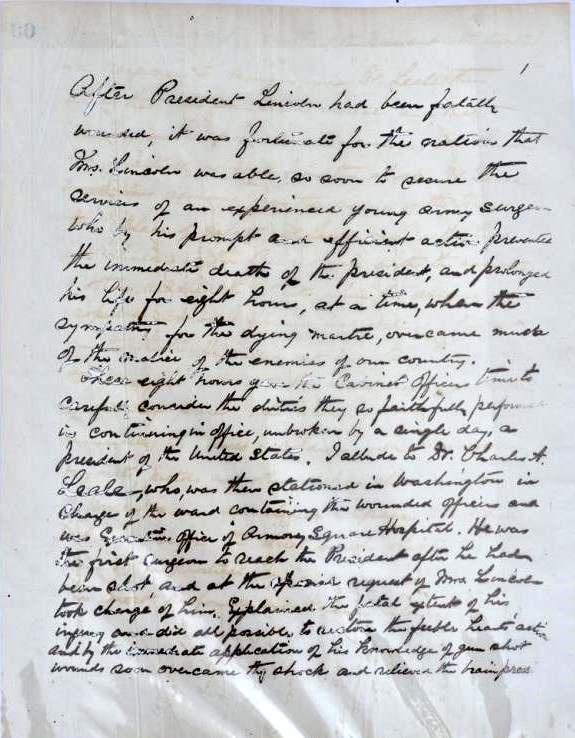 1
After President Lincoln had been fatally
wounded, it was fortunate for the nation that
Mrs. Lincoln was able, so soon to secure the
services of an experienced young army surgeon
who by his prompt and efficient action prevented
the immediate death of the President, and prolonged
his life for eight hours, at a time, when the
sympathy for the dying martre, overcame much
of the malice of the enemies of our country.
These eight hours gave the Cabinet Officers time to
carefully consider the duties they so faithfully performed
by continuing in office, unbroken by a single day, a
President of the United States. I allude to Dr. Charles A.
Leale, who, was then stationed in Washington in
Charge of the ward containing the wounded officers and
was Executive Officer of Armory Square Hospital. He was
the first surgeon to reach the President after he had
been shot, and at the request of Mrs. Lincoln
took charge of him, Explained the fatal extent of his
injury and did all possible to restore the feeble hearts action
and by the immediate application of his knowledge of gun shot
wounds soon overcame the shock and relieved the brain pres